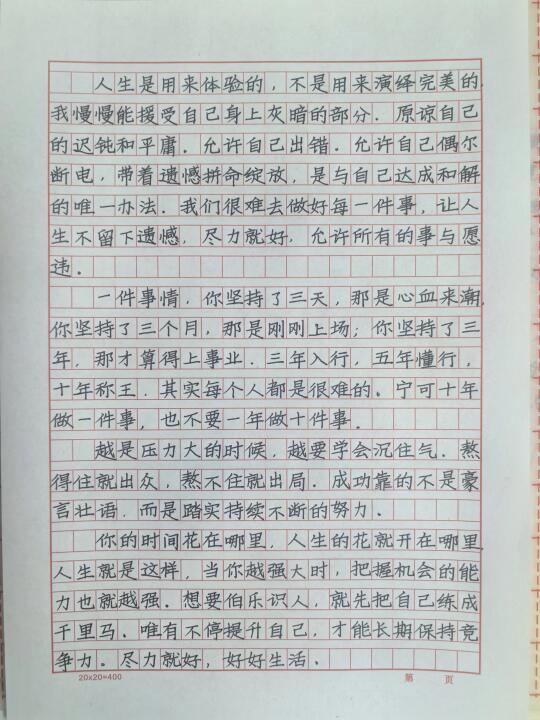 人生是用来体验的，不是用来演绎完美的.
我慢慢能接受自己身上灰暗的部分．原谅自己
的迟钝和平庸．允许自己出错．允许自己偶尔
断电，带着遗憾拼命绽放，是与自己达成和解
的唯一办法．我们很难去做好每一件事，让人
生不留下遗憾，尽力就好，允许所有的事与愿
违．
一件事情，你坚持了三天，那是心血来潮，
你坚持了三个月，那是刚刚上场；你坚持了三
年，那才算得上事业．三年入行，五年懂行，
十年称王．其实每个人都是很难的。宁可十年
做一件事，也不要一年做十件事．
越是压力大的时候，越要学会沉住气．熬
得住就出众，熬不住就出局．成功靠的不是豪
言壮语，而是踏实持续不断的努力．
你的时间花在哪里，人生的花就开在哪里，
人生就是这样，当你越强大时，把握机会的能
力也就越强．想要伯乐识人，就先把自己练成
千里马．唯有不停提升自己，才能长期保持竞
争力．尽力就好，好好生活．
20x20=400 第 页